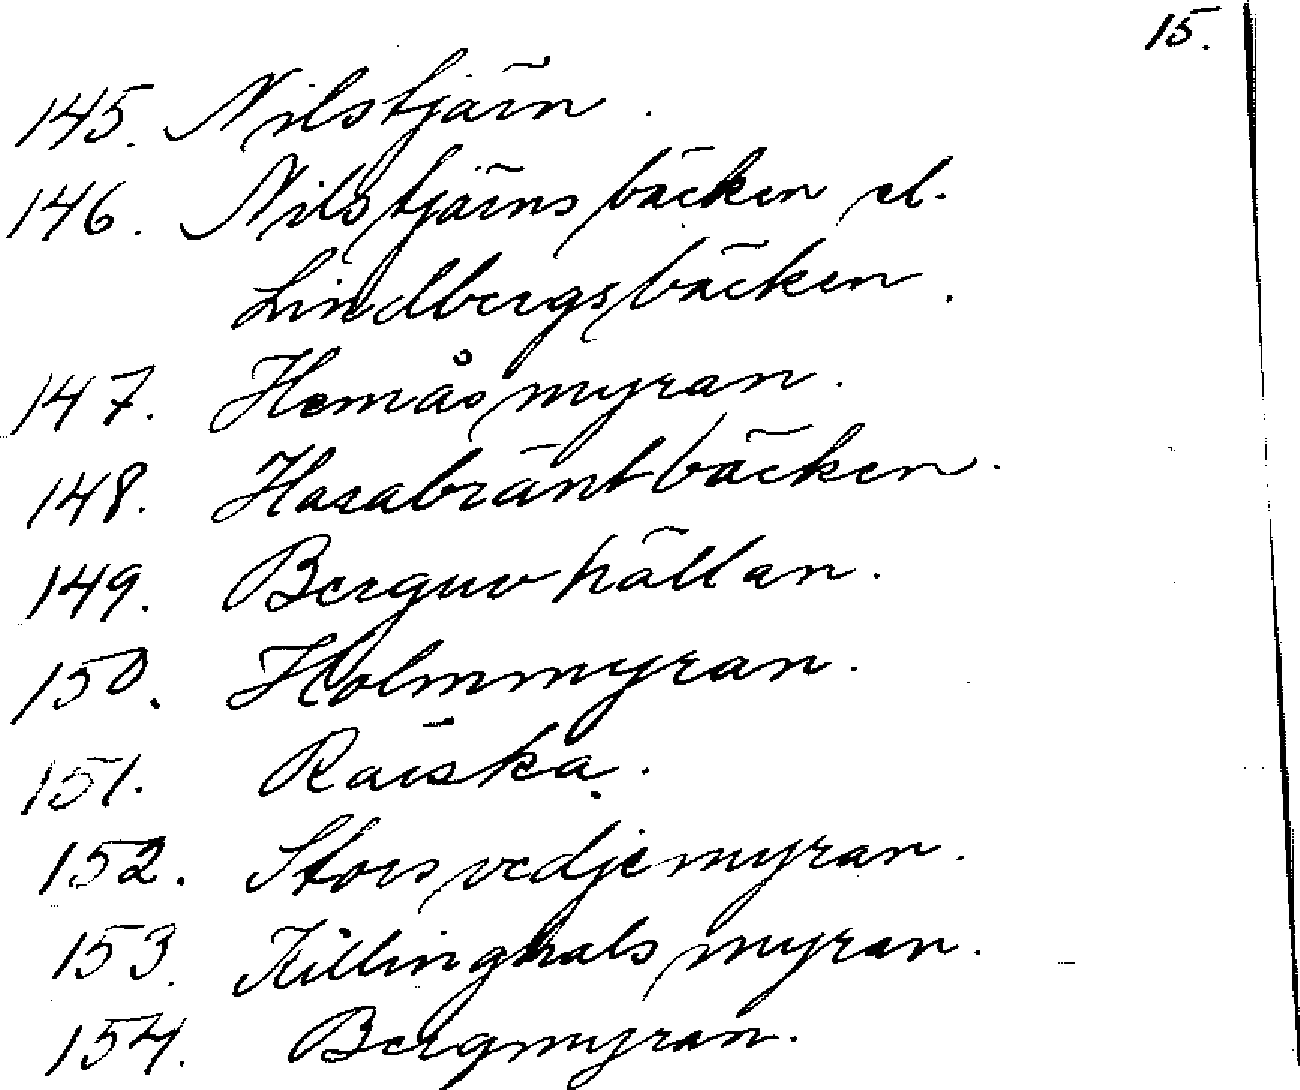 15.
145. Nilstjärn.
146. Nilstjärnsbäcken el.
Lindbergsbäcken.
147. Hemåsmyran.
148. Harabräntbäcken.
149. Berguvhällan.
150. Holmmyran.
151. Räiska.
152. Storsvedjemyran.
153. Killinghalsmyran.
154. Bergmyran.